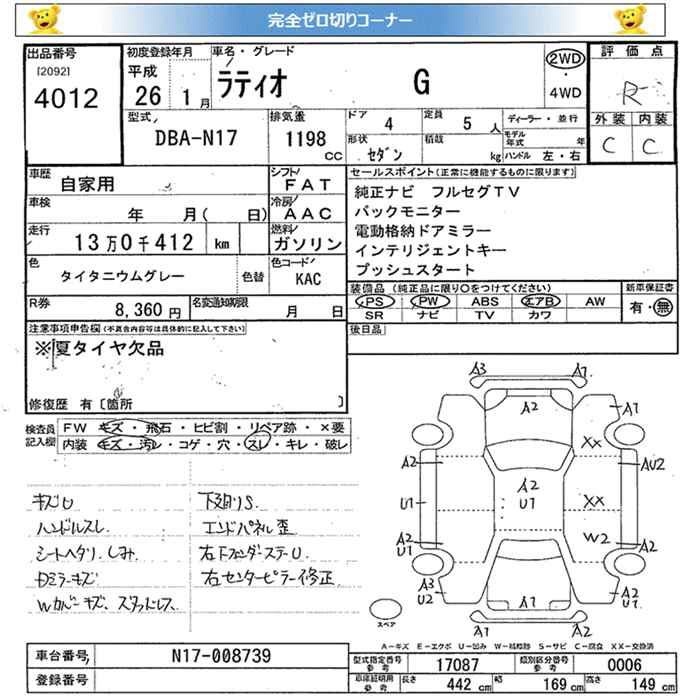 完全ゼロ切りコーナー
出品番号
[2092]
4012
初度登録年月
平成
26 1月
車名・グレード
ラティオ G
2WD
・
4WD
評価点
R
外装 内装
C C
型式
DBA-N17
排気量
1198
CC
ドア 4
形状 セダン
定員 5 人
積載 kg
ディーラー・並行
モデル年式 年
ハンドル 左・右
車歴 自家用
シフト FAT
車検 年 月( 日)
冷房 AAC
走行 13万0千412 km
燃料 ガソリン
色 タイタニウムグレー 色替
色コード KAC
R券 8,360円
名変通知期限 月 日
セールスポイント(正常に機能するものに限ります)
純正ナビ フルセグTV
バックモニター
電動格納ドアミラー
インテリジェントキー
プッシュスタート
装備品(純正品に限り○をつけてください)
PS PW ABS エアB AW
SR ナビ TV カワ
新車保証書
有・無
後日品
注意事項申告欄(不具合内容等は具体的に記入して下さい)
※夏タイヤ欠品
修復歴 有〔箇所 〕
検査員記入欄
FW キズ・飛石・ヒビ割・リペア跡・×要
内装 キズ・汚レ・コゲ・穴・スレ・キレ・破レ
キズU
ハンドルスレ
シートヘタリ、しみ
Dミラーキズ
Wカバーキズ、スタッドレス
下廻りS
エンドパネル歪
右Fフェンダーステー U
右センターピラー修正
A3 A1
A2
A1
XX
A2
AU2
A2
U1
U1
XX
W2
A2
U1
A2
A3
U2
A1
A2
U1
A1
A2
スペア
A-キズ E-エクボ U-凹み W-補修跡 S-サビ C-腐食 XX-交換済
車台番号 N17-008739
登録番号
型式指定番号 参考 17087
類別区分番号 参考 0006
車検証明用 参考
長さ 442 cm
幅 169 cm
高さ 149 cm